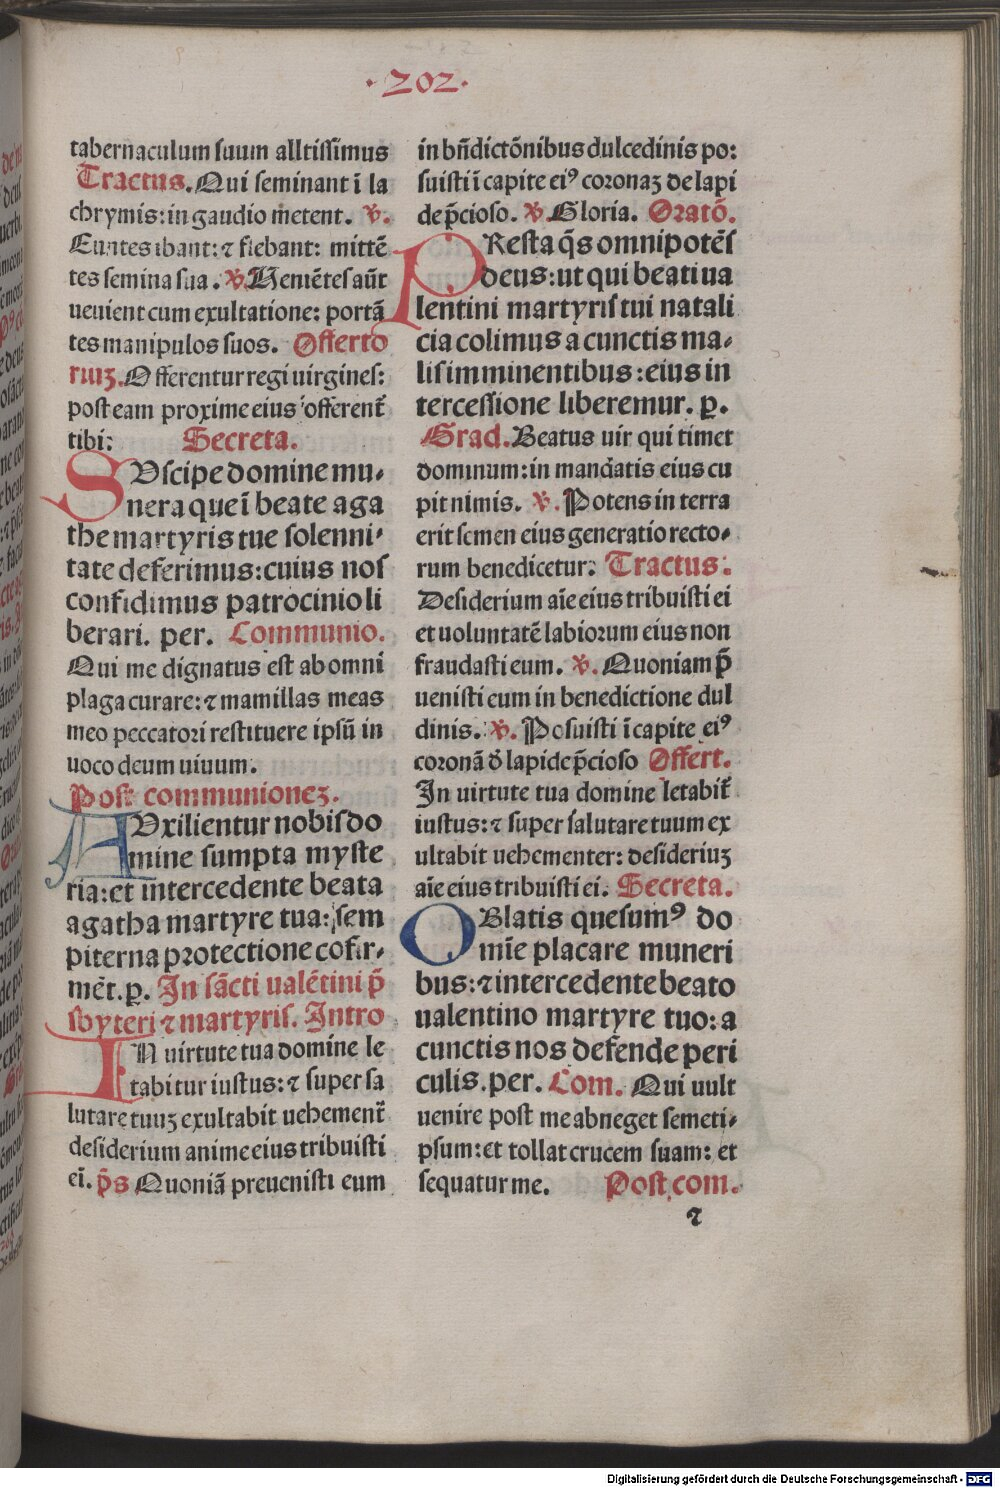 ·202·
tabernaculum suum alltissimus
Tractus. Qui seminant ī la
chrymis: in gaudio metent. ℣.
Euntes ibant: ⁊ flebant: mittē
tes semina sua. ℣. Ueniētes aūt
uenient cum exultatione: portā
tes manipulos suos. Offerto
riuꝫ. Offerentur regi uirgines:
post eam proxime eius offerent̄
tibi: Secreta.
SUscipe domine mu-
nera que ī beate aga
the martyris tue solenni-
tate deferimus: cuius nos
confidimus patrocinio li
berari. per. Communio.
Qui me dignatus est ab omni
plaga curare: ⁊ mamillas meas
meo peccatori restituere ipsū in
uoco deum uiuum.
Post communioneꝫ.
AUxilientur nobis do
mine sumpta myste
ria: et intercedente beata
agatha martyre tua: sem
piterna protectione cōfir-
mēt. p. In sācti ualētini p̄
sbyteri ⁊ martyris. Intro
IN uirtute tua domine le
tabitur iustus: ⁊ super sa
lutare tuuꝫ exultabit uehement̄
desiderium anime eius tribuisti
ei. p̄s Quoniā preuenisti eum
in bn̄dictōnibus dulcedinis po:
suisti ī capite eiꝰ coronaꝫ de lapi
de p̄cioso. ℣. Gloria. Oratō.
PResta q̄s omnipotēs
deus: ut qui beati ua
lentini martyris tui natali
cia colimus a cunctis ma-
lis imminentibus: eius in
tercessione liberemur. p.
Grad. Beatus uir qui timet
dominum: in mandatis eius cu
pit nimis. ℣. Potens in terra
erit semen eius generatio recto-
rum benedicetur: Tractus:
Desiderium aīe eius tribuisti ei
et uoluntatē labiorum eius non
fraudasti eum. ℣. Quoniam p̄
uenisti eum in benedictione dul
dinis. ℣. Posuisti ī capite eiꝰ
coronā d̄ lapide p̄cioso Offert.
In uirtute tua domine letabit̄
iustus: ⁊ super salutare tuum ex
ultabit uehementer: desideriuꝫ
aīe eius tribuisti ei. Secreta.
OBlatis quesumꝰ do
mīe placare muneri
bus: ⁊ intercedente beato
ualentino martyre tuo: a
cunctis nos defende peri
culis. per. Com. Qui uult
uenire post me abneget semeti-
psum: et tollat crucem suam: et
sequatur me. Post com.
⁊
Digitalisierung gefördert durch die Deutsche Forschungsgemeinschaft - DFG